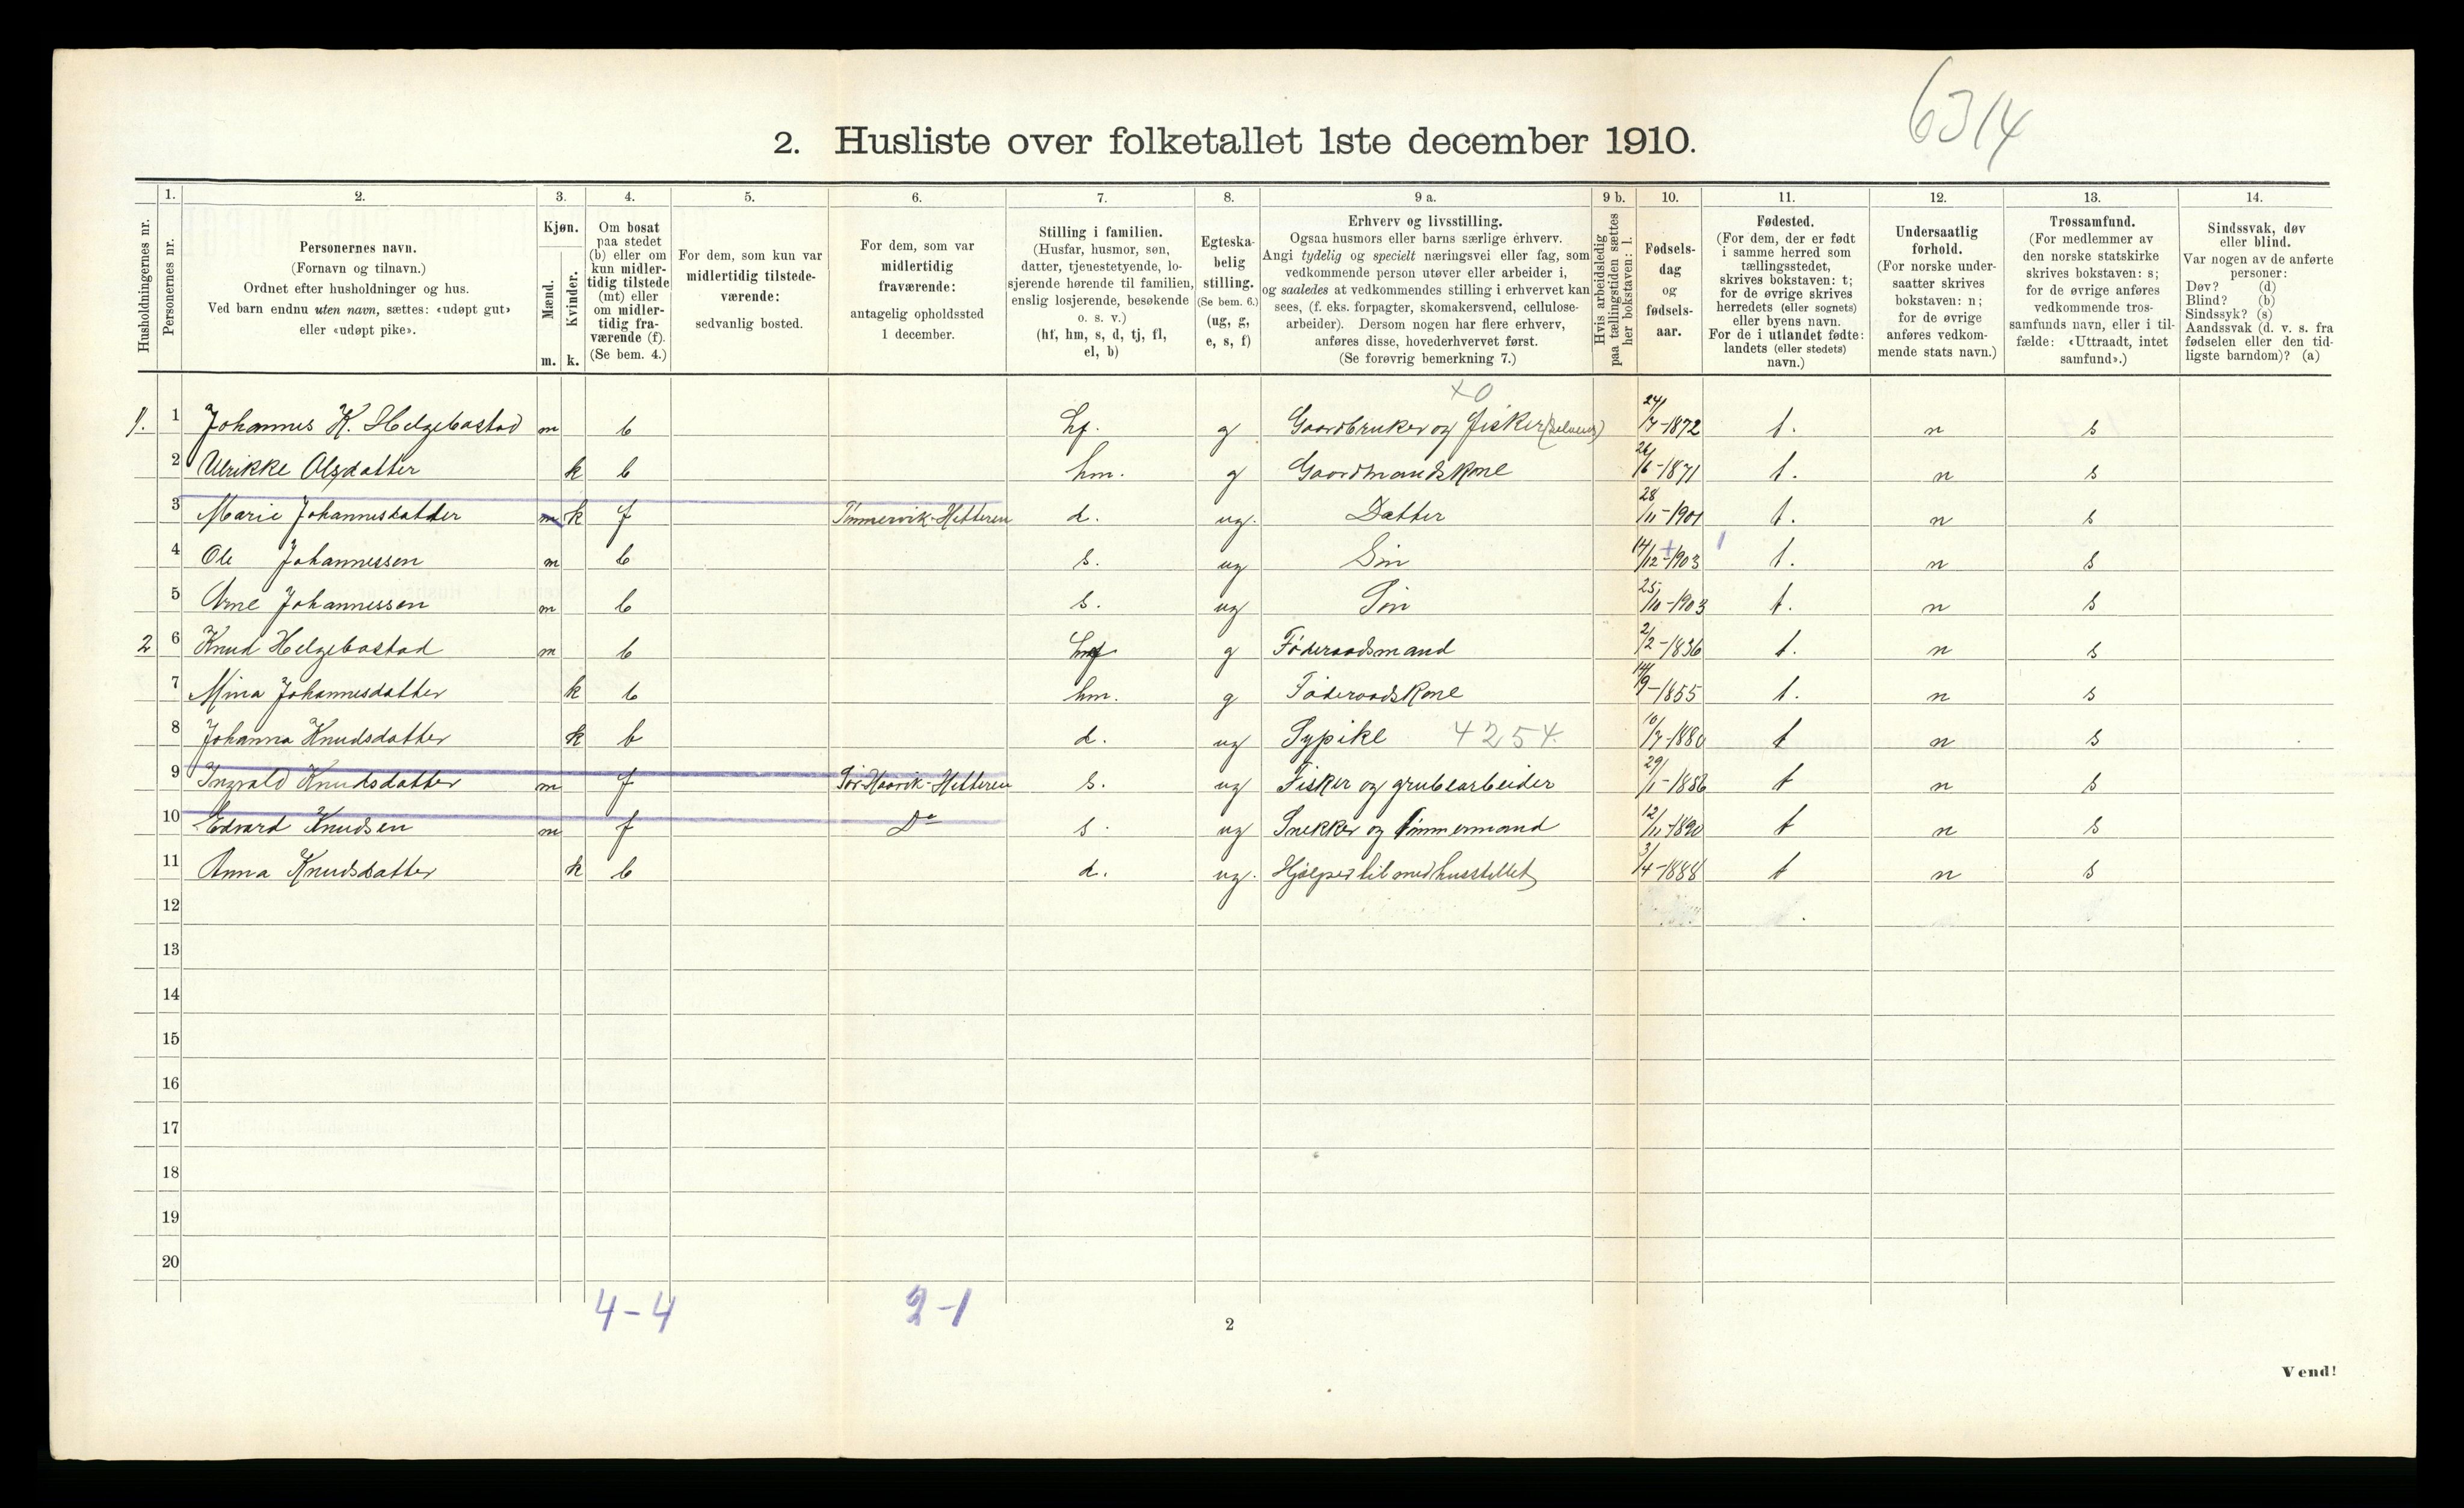 6314
2. Husliste over folketallet 1ste december 1910.
Husholdningernes nr.
1.
Personernes nr.
2.
Personernes navn.
(Fornavn og tilnavn.)
Ordnet efter husholdninger og hus.
Ved barn endnu uten navn, sættes: «udøpt gut»
eller «udøpt pike».
3.
Kjøn.
Mænd.
Kvinder.
m. k.
4.
Om bosat
paa stedet
(b) eller om
kun midler-
tidig tilstede
(mt) eller
om midler-
tidig fra-
værende (f).
(Se bem. 4.)
5.
For dem, som kun var
midlertidig tilstede-
værende:
sedvanlig bosted.
6.
For dem, som var
midlertidig
fraværende:
antagelig opholdssted
1 december.
7.
Stilling i familien.
(Husfar, husmor, søn,
datter, tjenestetyende, lo-
sjerende hørende til familien,
enslig losjerende, besøkende
o. s. v.)
(hf, hm, s, d, tj, fl,
el, b)
8.
Egteska-
belig
stilling.
(Se bem. 6.)
(ug, g,
e, s, f)
9 a.
Erhverv og livsstilling.
Ogsaa husmors eller barns særlige erhverv.
Angi tydelig og specielt næringsvei eller fag, som
vedkommende person utøver eller arbeider i,
og saaledes at vedkommendes stilling i erhvervet kan
sees, (f. eks. forpagter, skomakersvend, cellulose-
arbeider). Dersom nogen har flere erhverv,
anføres disse, hovederhvervet først.
(Se forøvrig bemerkning 7.)
9 b.
Hvis arbeidsledig
paa tællingstiden sættes
her bokstaven: l.
10.
Fødsels-
dag
og
fødsels-
aar.
11.
Fødested.
(For dem, der er født
i samme herred som
tællingsstedet,
skrives bokstaven: t;
for de øvrige skrives
herredets (eller sognets)
eller byens navn.
For de i utlandet fødte:
landets (eller stedets)
navn.)
12.
Undersaatlig
forhold.
(For norske under-
saatter skrives
bokstaven: n;
for de øvrige
anføres vedkom-
mende stats navn.)
13.
Trossamfund.
(For medlemmer av
den norske statskirke
skrives bokstaven: s;
for de øvrige anføres
vedkommende tros-
samfunds navn, eller i til-
fælde: «Uttraadt, intet
samfund».)
14.
Sindssvak, døv
eller blind.
Var nogen av de anførte
personer:
Døv? (d)
Blind? (b)
Sindssyk? (s)
Aandssvak (d. v. s. fra
fødselen eller den tid-
ligste barndom)? (a)
x0
1. 1 Johannes K. Helgebostad m b hf. g Gaardbruker og fisker 24/7-1872 t. n s
2 Ulrikke Olsdatter k b hm. g Gaardmandskone 26/6-1871 t. n s
3 Marie Johannesdatter m k f Timmervik-Hitteren d. ug. Datter 28/11-1901 t. n s
4 Ole Johannessen m b s. ug Sin 14/12-1903 t. n s
5 Arne Johannessen m b s. ug Søn 25/10-1903 t. n s
2 6 Knud Helgebostad m b hf g Føderaadsmand 2/2-1836 t. n s
7 Mina Johannesdatter k b hm. g Føderaadskone 14/9-1855 t. n s
8 Johanna Knudsdatter k b d. ug Sypike 4254 10/7-1880 t n s
9 Ingvald Knudsdatter m f Sør-Haavik-Hitteren s. ug Fisker og grubearbeider 29/1-1886 t n s
10 Edvard Knudsen m f Do s. ug Snekker og Tømmermand 12/11-1890 t n s
11 Anna Knudsdatter k b d. ug. Hjælper til med husstellet 3/4-1888 t n s
12
13
14
15
16
17
18
19
20
4-4 2-1
2
Vend!